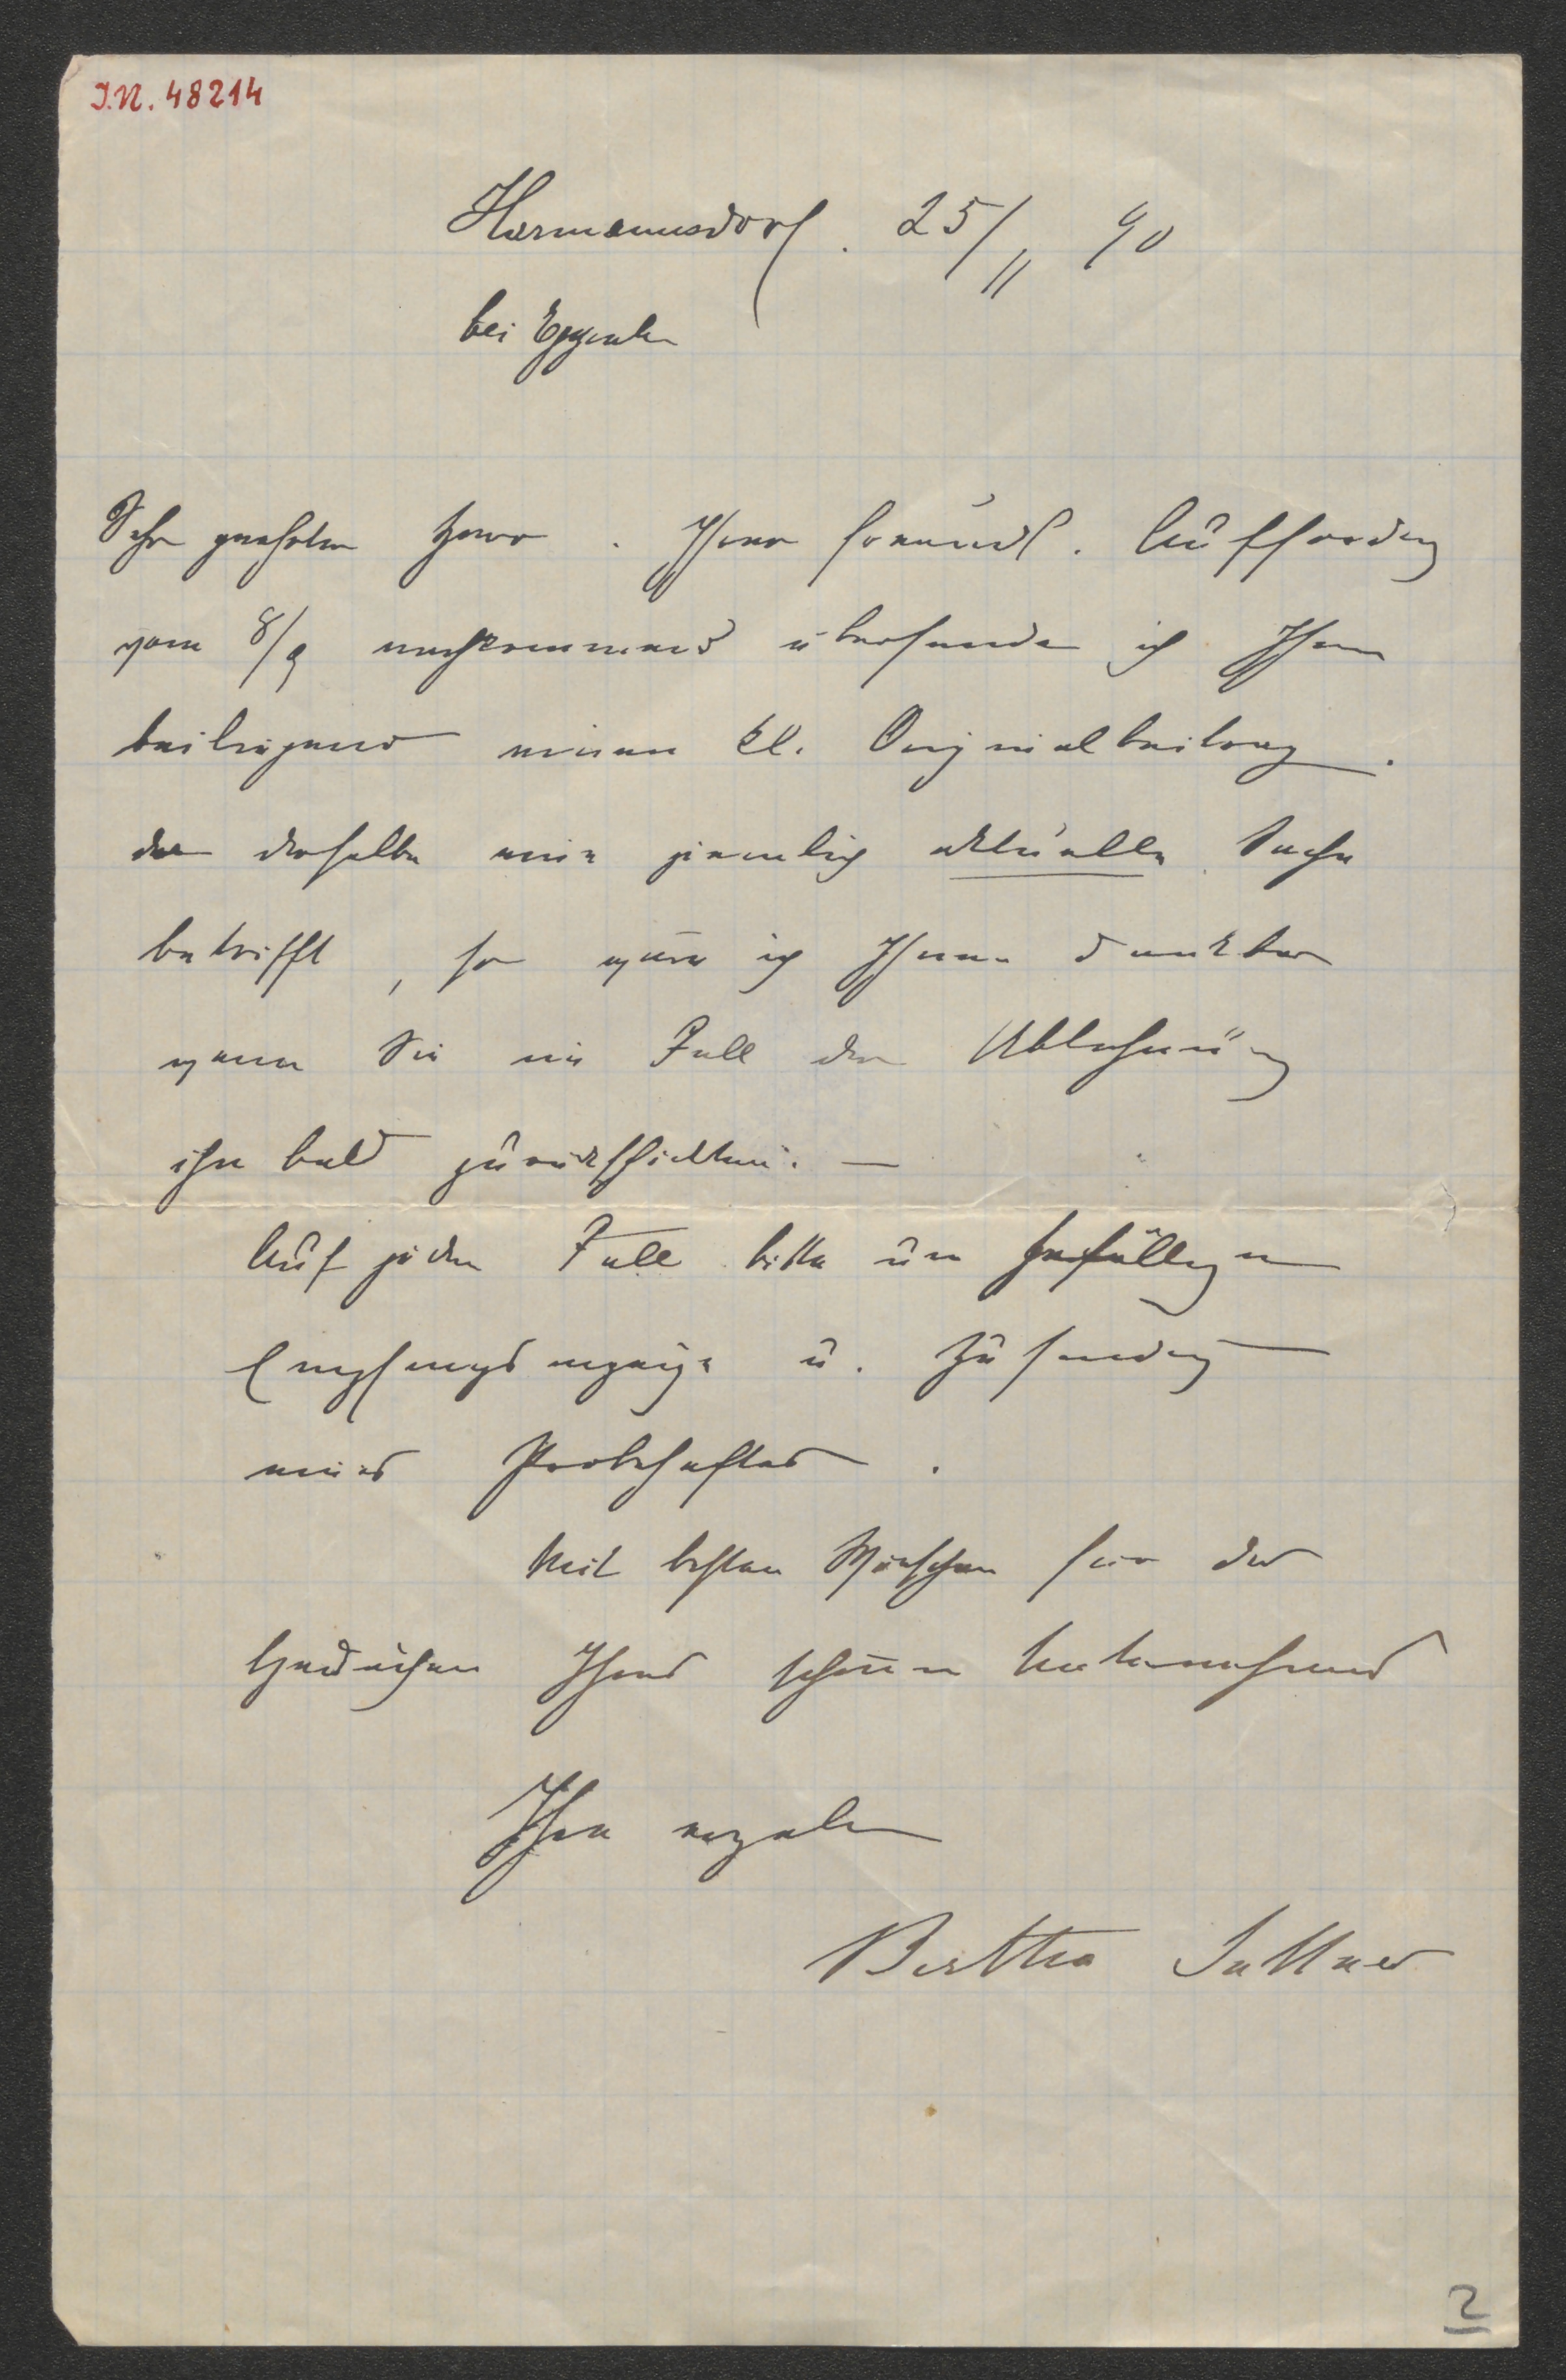 I.N. 48214
Harmannsdorf. 25/11 90
bei Eggenb
Sehr geehrter Herr. Ihrer freundl. Aufforderg
vom 8/9 nachkommend übersende ich Ihnen
beiliegend einen kl. Originalbeitrag.
da derselbe eine ziemlich aktuelle Sache
betrifft, so wäre ich Ihnen dankbar
wenn Sie im Fall der Ablehnung
ihn bald zurückschickten. —
Auf jeden Fall bitte um gefälligen
Empfangsanzeige u. Zusendung
eines Probeheftes.
Mit besten Wünschen für das
Gedeihen Ihres schönen Unternehmens
Ihre ergebene
Bertha Suttner
2